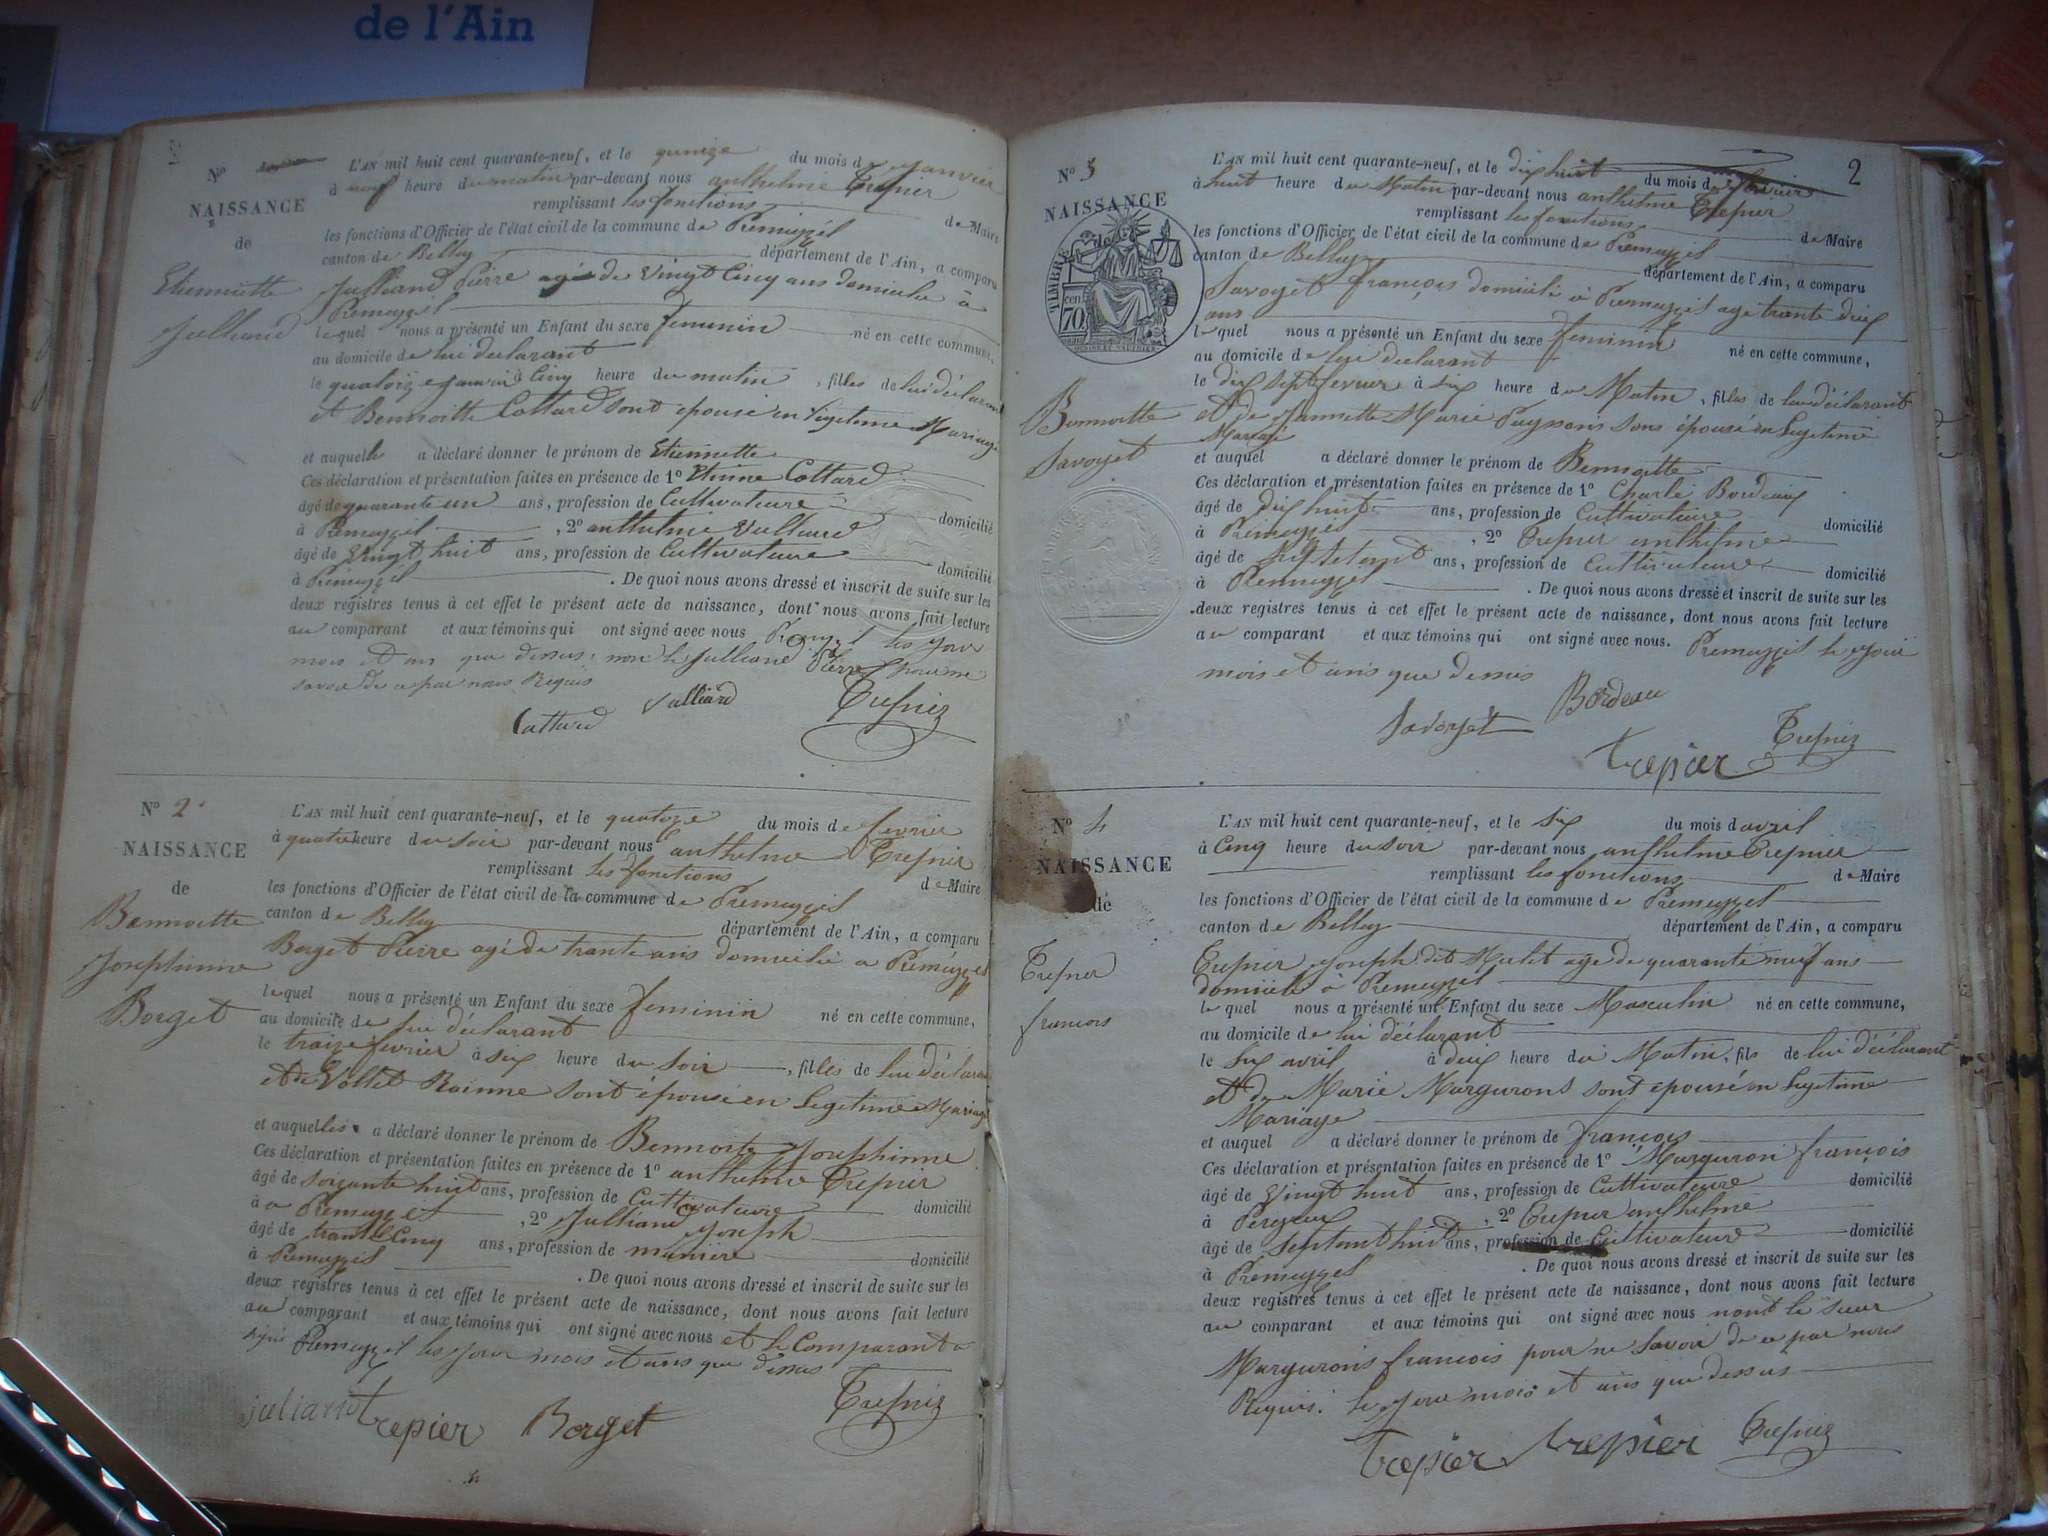 de l'Ain
N°
NAISSANCE
de
Etiennette
Julliand
L'AN mil huit cent quarante-neuf, et le quinze du mois de janvier
à neuf heure du matin par-devant nous anthelme Trepier
remplissant les fonctions de Maire
les fonctions d'Officier de l'état civil de la commune de Premeyzel
canton de Belley département de l'Ain, a comparu
Julliand Pierre agé de vingt Cinq ans domicilie à
Premeyzel
lequel nous a présenté un Enfant du sexe feminin né en cette commune,
au domicile de lui declarant
le quatorze janvie à Cinq heure du matin, filles de lui déclarant
et Bennoitte Cottard sont epousé en Legitime Mariage
et auquelle a déclaré donner le prénom de Etiennette
Ces déclaration et présentation faites en présence de 1° Etienne Cottard
âgé de quarante un ans, profession de Cultivateure domicilié
à Premeyzel, 2° anthelme Vulliard
âgé de Vingt huit ans, profession de Cultivateure domicilié
à Premeyzel. De quoi nous avons dressé et inscrit de suite sur les
deux registres tenus à cet effet le présent acte de naissance, dont nous avons fait lecture
au comparant et aux témoins qui ont signé avec nous Premeyzel les jour
mois et an que dessus, non le Julliand Pierre pour ne
savoir de ce par nous Requis
Cattard Vulliard Trepier
N° 2
NAISSANCE
de
Bennoitte
Josephinne
Borget
L'AN mil huit cent quarante-neuf, et le quatorze du mois de fevrier
à quatre heure du soir par-devant nous anthelme Trepier
remplissant les fonctions de Maire
les fonctions d'Officier de l'état civil de la commune de Premeyzel
canton de Belley département de l'Ain, a comparu
Borget Pierre agé de trante ans domicilié a Premeyzel
lequel nous a présenté un Enfant du sexe feminin né en cette commune,
au domicile de lui déclarant
le traize fevrier à six heure du soir, filles de lui déclarant
et de Vollet Roinne sont épousé en Legitime Mariage
et auquelles a déclaré donner le prénom de Bennoite Josephinne
Ces déclaration et présentation faites en présence de 1° anthelme Trepier
âgé de soixante huit ans, profession de Cultivateure domicilié
à a Premeyzel, 2° Julliand Joseph
âgé de trante Cinq ans, profession de domicilié
à Premeyzel. De quoi nous avons dressé et inscrit de suite sur les
deux registres tenus à cet effet le présent acte de naissance, dont nous avons fait lecture
au comparant et aux témoins qui ont signé avec nous et le Comparant a
signé Premeyzel les jour mois et ans que dessus
juliand trepier Borget Trepier
2
N° 3
NAISSANCE
de
TIMBRE
70 cen
Bennoitte
Savoyet
L'AN mil huit cent quarante-neuf, et le dix huit du mois de fevrier
à huit heure du Matin par-devant nous anthelme Trepier
remplissant les fonctions de Maire
les fonctions d'Officier de l'état civil de la commune de Premeyzel
canton de Belley département de l'Ain, a comparu
Savoyet françois domicilé à Premeyzel age trante dix
ans
lequel nous a présenté un Enfant du sexe feminin né en cette commune,
au domicile de lui declarant
le dix sept fevrier à six heure du Matin, filles de lui déclarant
et de Jannette Marie Puynons sons épousé en Legitime
Mariage
et auquel a déclaré donner le prénom de Bennoitte
Ces déclaration et présentation faites en présence de 1° Charle Bordeaux
âgé de dix huit ans, profession de Cultivateure domicilié
à Premeyzel, 2° Trepier anthelme
âgé de ans, profession de Cultivateure domicilié
à Premeyzel. De quoi nous avons dressé et inscrit de suite sur les
deux registres tenus à cet effet le présent acte de naissance, dont nous avons fait lecture
au comparant et aux témoins qui ont signé avec nous. Premeyzel le jour
mois et ans que dessus
Savoyet Bordeau
trepier Trepier
N° 4
NAISSANCE
de
Trepier
francois
L'AN mil huit cent quarante-neuf, et le six du mois d avril
à Cinq heure du soir par-devant nous anthelme Trepier
remplissant les fonctions de Maire
les fonctions d'Officier de l'état civil de la commune de Premeyzel
canton de Belley département de l'Ain, a comparu
Trepier Joseph dit age de quarante neuf ans
domicilé à Premeyzel
lequel nous a présenté un Enfant du sexe Masculin né en cette commune,
au domicile de lui déclarant
le six avril à dix heure du Matin, fils de lui déclarant
et de Marie Margurons sont epousé en Legitime
Mariage
et auquel a déclaré donner le prénom de françois
Ces déclaration et présentation faites en présence de 1° Marguron françois
âgé de Vingt huit ans, profession de Cultivateure domicilié
à Peyzieux, 2° Trepier anthelme
âgé de septant huit ans, profession de Cultivateure domicilié
à Premeyzel. De quoi nous avons dressé et inscrit de suite sur les
deux registres tenus à cet effet le présent acte de naissance, dont nous avons fait lecture
au comparant et aux témoins qui ont signé avec nous nont le sieur
Margurons francois pour ne savoir de ce par nous
Requis. le jour mois et ans que dessus
trepier trepier Trepier